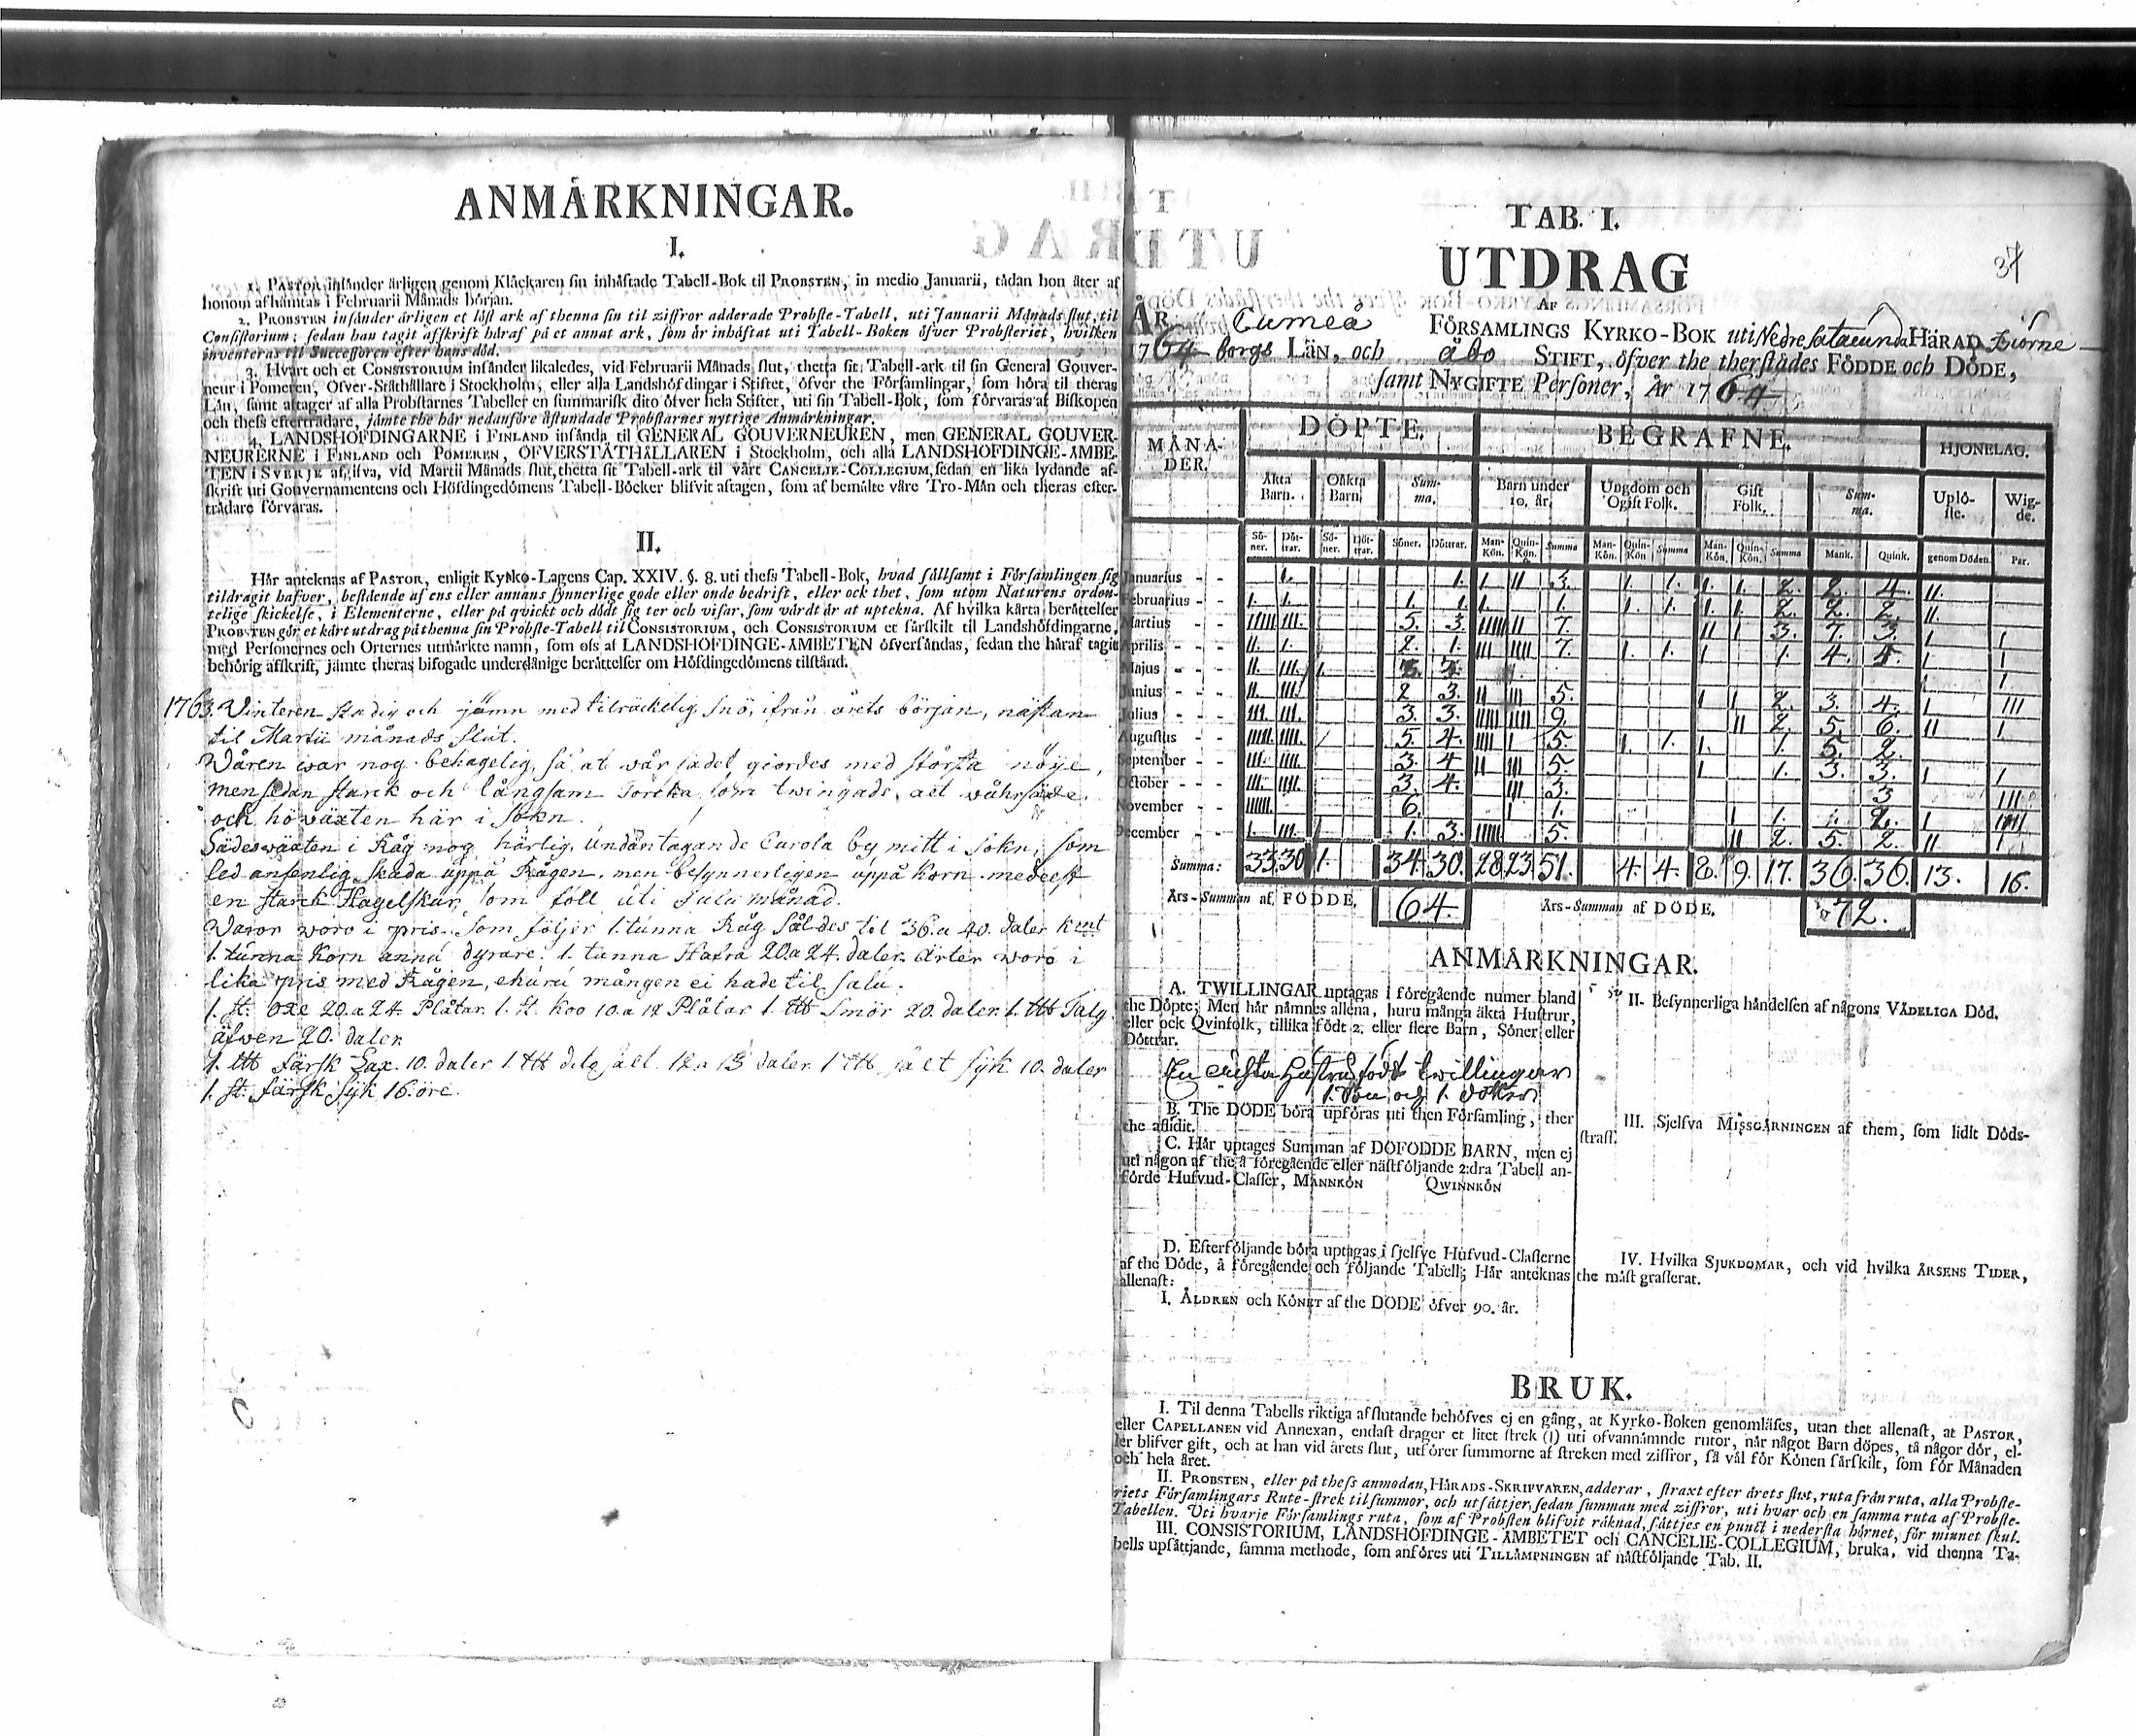 ANMÄRKNINGAR.
I.
1. PASTOR insänder årligen genom Klåckaren sin inhäftade Tabell-Bok til PROBSTEN, in medio Januarii, tådan hon åter af
honom afhämtas i Februarii Månads början.
2. PROBSTEN insänder årligen et löst ark af thenna sin til ziffror adderade Probste-Tabell, uti Januarii Månads slut, til
Consistorium; sedan han tagit afskrift häraf på et annat ark, som är inhäftat uti Tabell-Boken öfver Probsteriet, hvilken
inventeras til Successoren efter hans död.
3. Hvart och et CONSISTORIUM insänder likaledes, vid Februarii Månads slut, thetta sit Tabell-ark til sin General Gouver-
neur i Pomeren, Öfver-Ståthållare i Stockholm, eller alla Landshöfdingar i Stiftet, öfver the Församlingar, som höra til theras
Län, samt aftager af alla Probstarnes Tabeller en summarisk dito öfver hela Stiftet, uti sin Tabell-Bok, som förvaras af Biskopen
och thess efterträdare, jämte the här nedanföre åstundade Probstarnes nyttige Anmärkningar.
4. LANDSHÖFDINGARNE i FINLAND insända til GENERAL GOUVERNEUREN, men GENERAL GOUVER-
NEURERNE i FINLAND och POMEREN, ÖFVERSTÅTHÅLLAREN i Stockholm, och alla LANDSHÖFDINGE-ÄMBE-
TEN i SVERJE afgifva, vid Martii Månads slut, thetta sit Tabell-ark til vårt CANCELIE-COLLEGIUM, sedan en lika lydande af-
skrift uti Gouvernamentens och Höfdingedömens Tabell-Böcker blifvit aftagen, som af bemälte våre Tro-Män och theras efter-
trädare förvaras.
II.
Här anteknas af PASTOR, enligit Kyrko-Lagens Cap. XXIV. §. 8. uti thess Tabell-Bok, hvad sällsamt i Församlingen sig
tildragit hafver, bestående af ens eller annans synnerlige gode eller onde bedrift, eller ock thet, som utom Naturens orden-
telige skickelse, i Elementerne, eller på qvickt och dödt sig ter och visar, som värdt är at uptekna. Af hvilka korta berättelser
PROBSTEN gör et kårt utdrag på thenna sin Probste-Tabell til CONSISTORIUM, och CONSISTORIUM et särskilt til Landshöfdingarne,
med Personernes och Orternes utmärkte namn, som oss af LANDSHÖFDINGE-ÄMBETEN öfversändas, sedan the häraf tagit
behörig afskrift, jämte theras bifogade underdånige berättelser om Höfdingedömens tilstånd.
1763. Vinteren stadig och jämn med tilräckelig Snö, ifrån årets början, nästan
til Martii månads slut.
Våren war nog behagelig, så at vår sädet giordes med största nöije,
men sedan starck och långsam Torcka, som twingade alt wåhrsäde
och höväxten här i sokn.
Sädeswäxten i Råg nog härlig, undantagande Carola by mitt i sokn, som
led ansenlig skada uppå Rågen, men besynnerligen uppå Korn medelst
en starck Hagelskur, som föll uti Julii månad.
Waror woro i pris som följer 1. tunna Råg såldes til 36. a 40. daler kmt
1. tunna Korn ännu dyrare. 1. tunna Hafra 20. a 24. daler. Ärter woro i
lika pris med Rågen, ehuru mången ei hade til salu.
1. st. Oxe 20. a 24. Plåtar. 1. st. Koo 10. a 12 Plåtar 1. ℔ Smör 20. daler. 1. ℔ Talg
äfwen 20. daler
1. ℔ färsk Lax 10. daler 1. ℔ dito salt 12. a 13 daler 1 ℔ salt sijk 10. daler
1. st. färsk sijk 16. öre.
TAB. I.
37
UTDRAG
AF
ÅR Cumeå FÖRSAMLINGS KYRKO-BOK uti Nedre Satacunda HÄRAD, Biörne-
1764 borgs LÄN, och åbo STIFT, öfver the therstädes FÖDDE och DÖDE,
samt NYGIFTE Personer, År 1764
MÅNA-DER. DÖPTE. BEGRAFNE. HJONELAG.
Äkta Barn. Oäkta Barn. Summa. Barn under 10. år. Ungdom och Ogift Folk. Gift Folk. Summa. Uplö-ste. Wig-de.
Sö-ner. Döt-trar. Sö-ner. Döt-trar. Söner. Döttrar. Man-Kön. Quin-Kön. Summa Man-Kön. Quin-Kön Summa Man-Kön. Quin-Kön. Summa Mank. Quink. genom Döden. Par.
Januarius - - 1. 1. 1 11 3. 1. 1. 1. 1. 2. 2. 4. 11.
Februarius - - 1. 1. 1. 1. 1. 1. 1. 1. 1. 1. 2. 2. 2. 11.
Martius - - 11111 111. 5. 3. 11111 11 7. 11 1 3. 7. 3. 1. 1
Aprilis - - 11. 1. 2. 1. 111 1111 7. 1. 1. 1 1. 4. 4. 1. 1
Majus - - 11. 111. 1. 3. 3. 1
Junius - - 11. 111. 2 3. 11 111 5. 1 1 2. 3. 4. 1 111
Julius - - 111. 111. 3. 3. 11111 1111 9. 11 2. 5. 6. 11 1
Augustus - - 11111. 1111. 5. 4. 1111 1 5. 1. 1. 1. 1. 5. 2.
September - - 111. 1111. 3. 4 11 111 5. 1 1. 3. 3. 1 1
October - - 111. 1111. 3. 4. 111 3. 3 111
November - - 111111. 6. 1 1. 1 1. 2. 1
December - - 1. 111. 1. 3. 11111 5. 11 2. 5. 2. 11 1.
Summa: 33. 30. 1. 34. 30. 28 23. 51. 4. 4. 8. 9. 17. 36. 36. 13. 16.
Års-Summan af FÖDDE. 64. Års-Summan af DÖDE. 72.
ANMÄRKNINGAR.
A. TWILLINGAR uptagas i föregående numer bland
the Döpte; Men här nämnes allena, huru många äkta Hustrur,
eller ock Qvinfolk, tillika födt 2. eller flere Barn, Söner eller
Döttrar.
En ächta hustru födt twillingar
1. Son och 1. dotter
B. The DÖDE böra upföras uti then Församling, ther
the aflidit.
C. Här uptages Summan af DÖFÖDDE BARN, men ej
uti någon af the å föregående eller nästföljande 2:dra Tabell an-
förde Hufvud-Classer, MANNKÖN QWINNKÖN
D. Efterföljande böra uptagas i sjelfve Hufvud-Classerne
af the Döde, å föregående och följande Tabell; Här anteknas
allenast:
I. ÅLDREN och KÖNET af the DÖDE öfver 90. år.
II. Besynnerliga händelsen af någons VÅDELIGA Död.
III. Sjelfva MISSGÄRNINGEN af them, som lidit Döds-
straff.
IV. Hvilka SJUKDOMAR, och vid hvilka ÅRSENS TIDER,
the mäst grasserat.
BRUK.
I. Til denna Tabells riktiga afslutande behöfves ej en gång, at Kyrko-Boken genomläses, utan thet allenast, at PASTOR,
eller CAPELLANEN vid Annexan, endast drager et litet strek (1) uti ofvannämnde rutor, när något Barn döpes, tå någor dör, el-
ler blifver gift, och at han vid årets slut, utförer summorne af streken med ziffror, så väl för Könen särskilt, som för Månaden
och hela året.
II. PROBSTEN, eller på thess anmodan, HÄRADS-SKRIFVAREN, adderar, straxt efter årets slut, ruta från ruta, alla Probste-
riets Församlingars Rute-strek til summor, och utsättjer sedan summan med ziffror, uti hvar och en samma ruta af Probste-
Tabellen. Uti hvarje Församlings ruta, som af Probsten blifvit räknad, sättjes en punkt i nedersta hörnet, för minnet skul.
III. CONSISTORIUM, LANDSHÖFDINGE-ÄMBETET och CANCELIE-COLLEGIUM, bruka, vid thenna Ta-
bells upsättjande, samma methode, som anföres uti TILLÄMPNINGEN af nästföljande Tab. II.